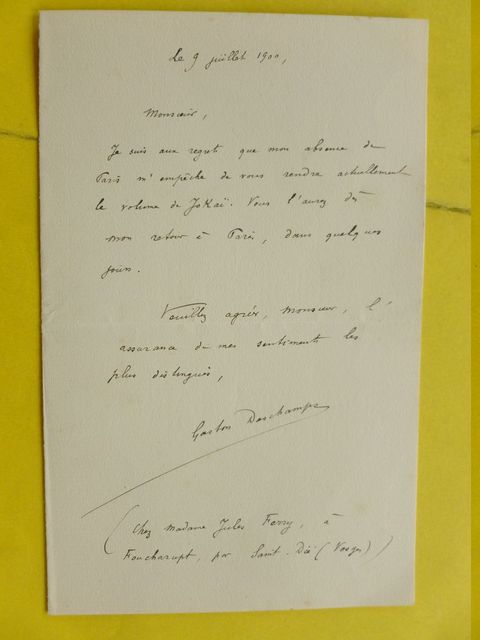 Le 9 juillet 1900,
Monsieur,
Je suis aux regrets que mon absence de
Paris m'empêche de vous rendre actuellement
le volume de Jokaï. Vous l'aurez dès
mon retour à Paris, dans quelques
jours.
Veuillez agréer, monsieur, l'
assurance de mes sentiments les
plus distingués,
Gaston Deschamps
(Chez Madame Jules Ferry, à
Foucharupt, par Saint-Dié (Vosges))